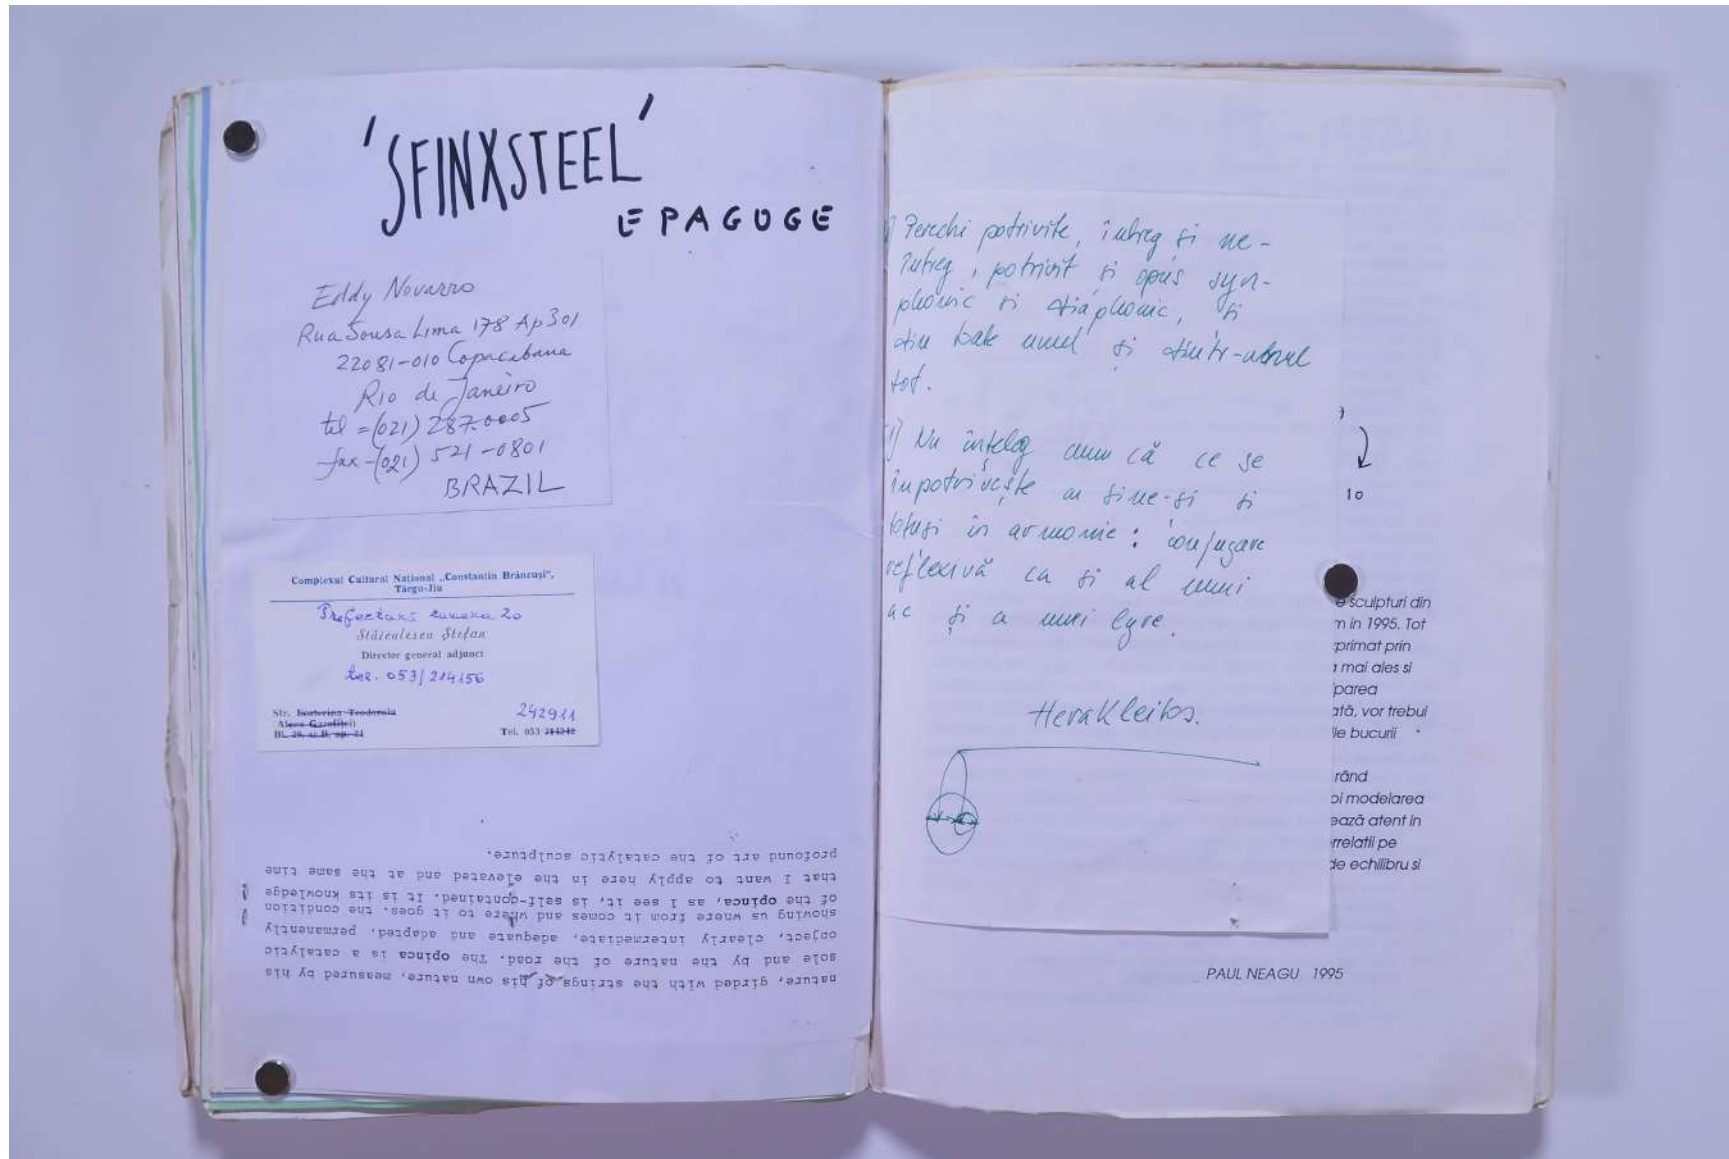 'SFINXSTEEL'
EPAGOGE
Eddy Novarro
Rua Sousa Lima 178 Ap 301
22081-010 Copacabana
Rio de Janeiro
tel = (021) 287.0005
fax - (021) 521-0801
BRAZIL
Complexul Cultural Național „Constantin Brâncuși",
Târgu-Jiu
Prefectura camera 20
Stăiculescu Ștefan
Director general adjunct
tel. 053/214156
Str. Ecaterina Teodoroiu
Aleea Garofiței
Bl. 29, sc. B, ap. 21
242911
Tel. 053 214242
nature, girded with the strings of his own nature, measured by his
sole and by the nature of the road. The opinca is a catalytic
object, clearly intermediate, adequate and adapted, permanently
showing us where from it comes and where to it goes. the condition
of the opinca, as I see it, is self-contained. It is its knowledge
that I want to apply here in the elevated and at the same time
profound art of the catalytic sculpture.
Perechi potrivite, întreg și ne-
întreg, potrivit și opus syn-
phonic și diaphonic, și
din toate unul și dintr-unul
tot.
Nu înțeleg cum că ce se
împotrivește cu sine-și și
totuși în armonie: conjugare
reflexivă ca și al unui
arc și a unei lyre.
Herakleitos.
10
e sculpturi din
m in 1995. Tot
xprimat prin
a mai ales si
parea
ată, vor trebui
ile bucurii
rând
oi modelarea
ează atent in
rrelatii pe
de echilibru si
PAUL NEAGU 1995